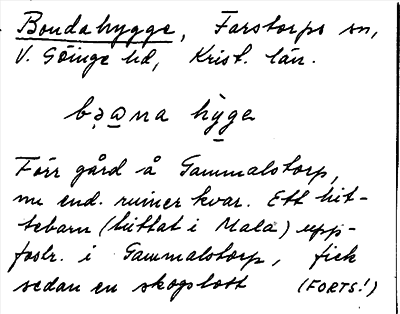 Bondahygge, Farstorps sn,
V. Göinge hd, Krist. län.
bǝana hyge
Förr gård å Gammalstorp,
nu end. ruiner kvar. Ett hit-
tebarn (hittat i Mala) upp-
fostr. i Gammalstorp, fick
sedan en skogslott (FORTS.!)